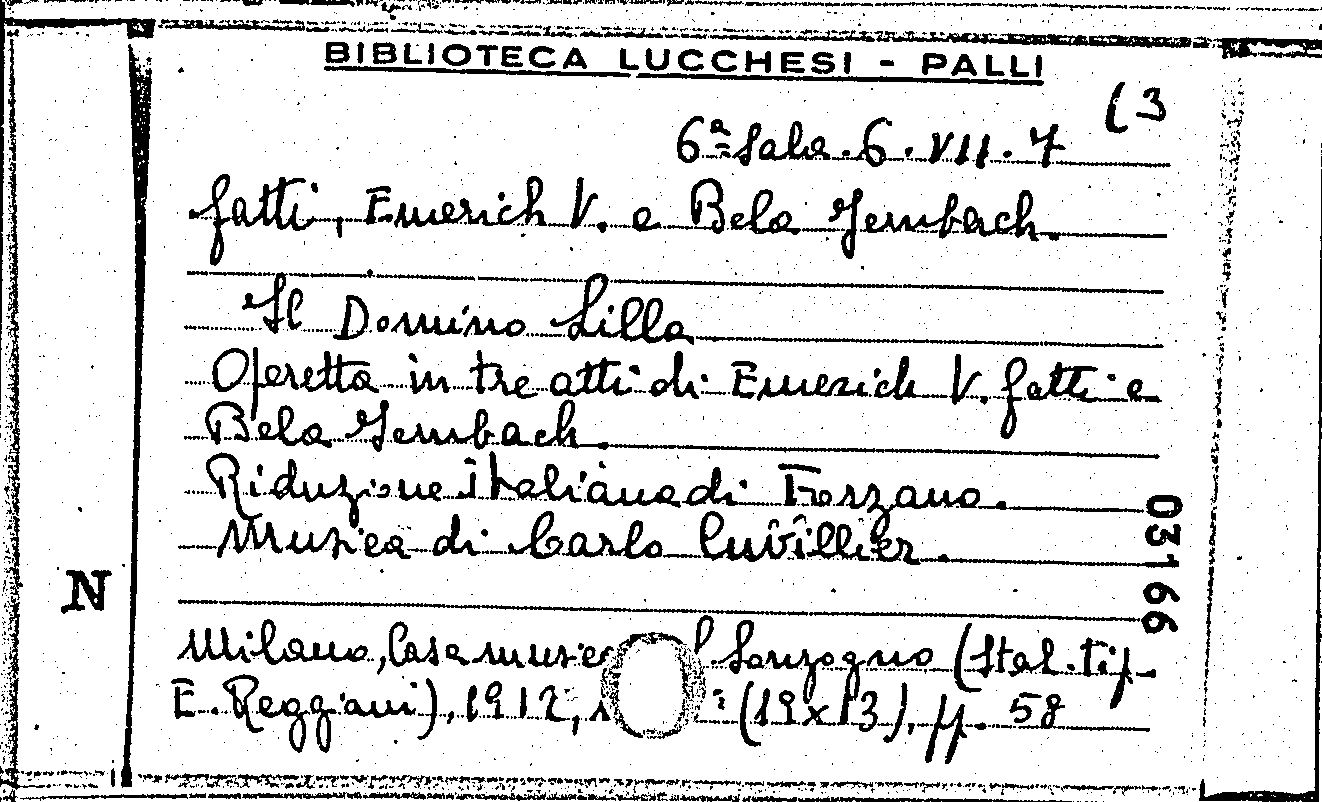 BIBLIOTECA LUCCHESI - PALLI
(3
6ª Sala. 6. VII. 7
Gatti, Emerich V. e Bela Jembach.
Il Domino Lilla
Operetta in tre atti di Emerich V. Gatti e
Bela Jembach.
Riduzione italiana di Forzano.
Musica di Carlo Cuvillier.
03166
N
Milano, Casa musica Sonzogno (Stab. tip.
E. Reggiani), 1912, (19x13), pp. 58